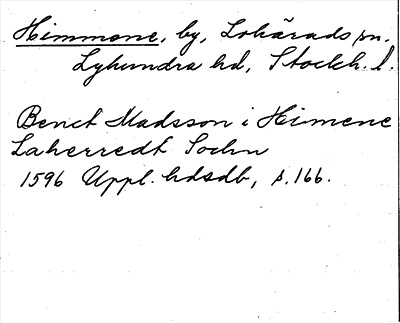 Himmone, by, Lohärads sn.
Lyhundra hd, Stockh. l.
Benct Madsson i Himene
Laherredt Sochn
1596 Uppl. hdsdb, s. 166.